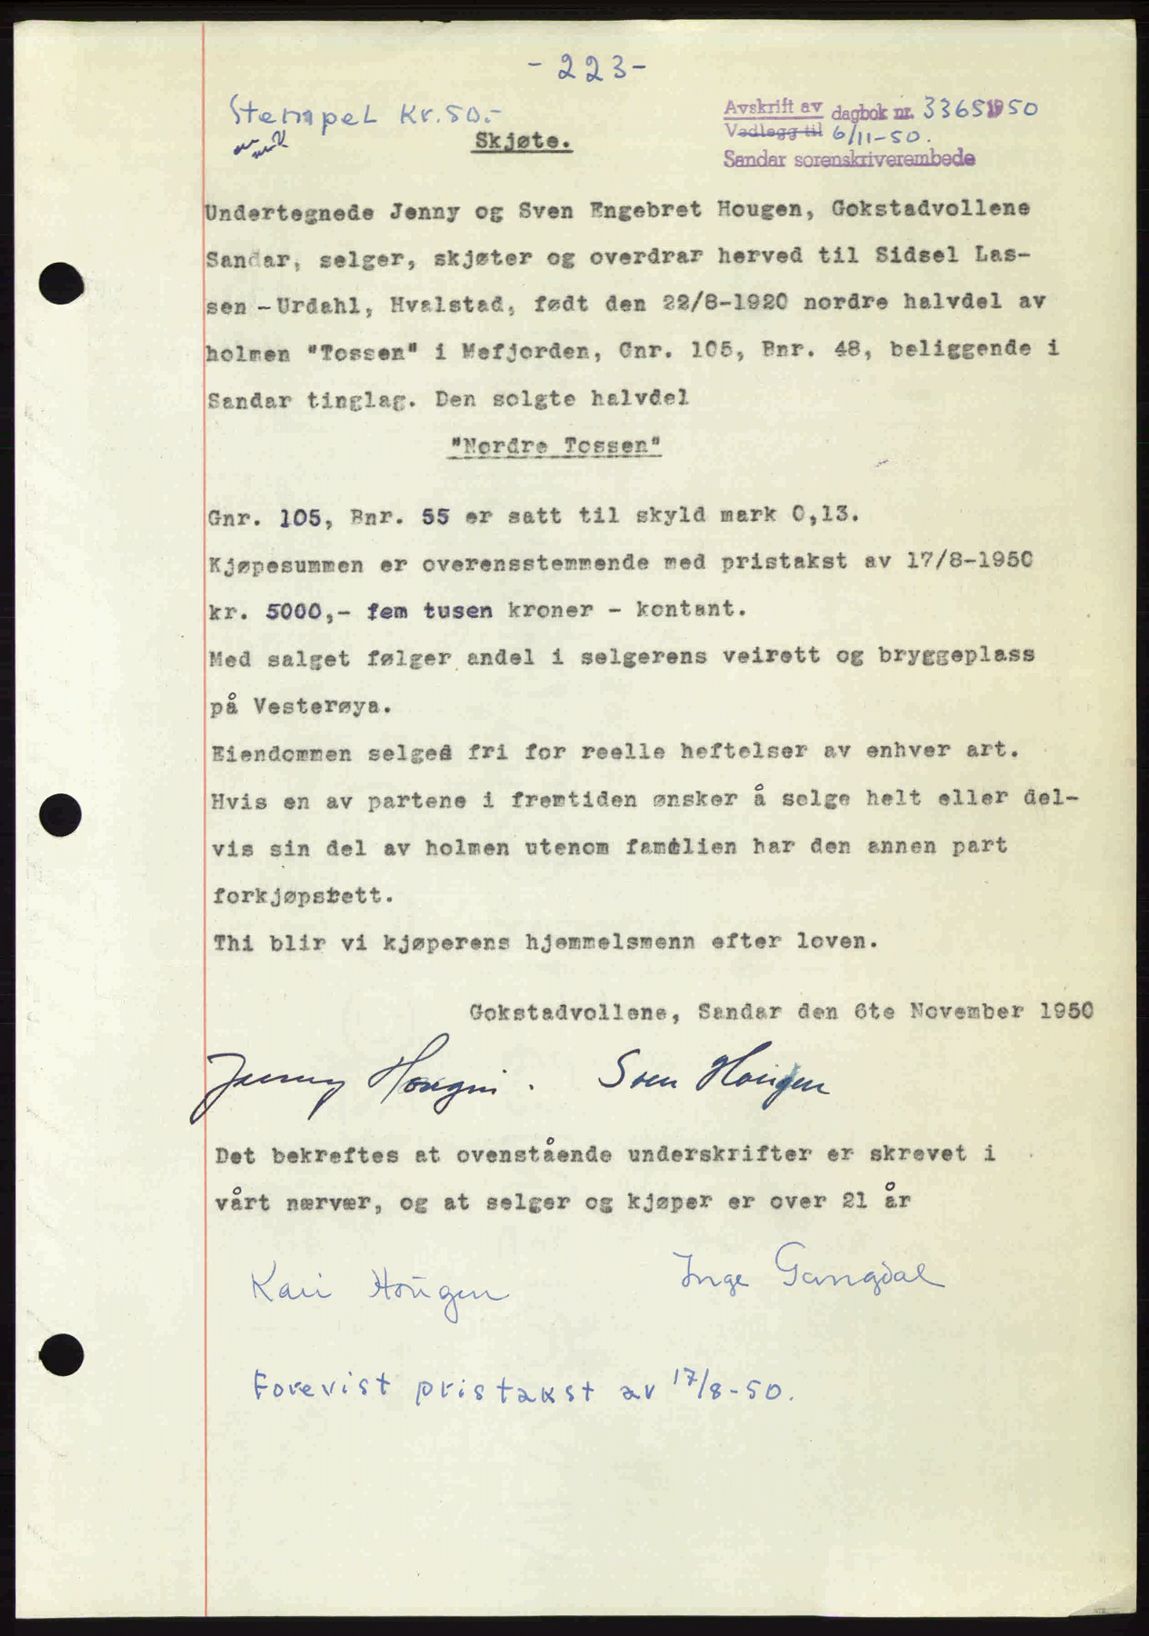 - 223 -
Stempel Kr. 50.-
Avskrift av dagbok nr. 3365 1950
Vedlegg til 6/11-50.
Skjøte.
Sandar sorenskriverembede
Undertegnede Jenny og Sven Engebret Hougen, Gokstadvollene
Sandar, selger, skjøter og overdrar herved til Sidsel Las-
sen -Urdahl, Hvalstad, født den 22/8-1920 nordre halvdel av
holmen "Tossen" i Mefjorden, Gnr. 105, Bnr. 48, beliggende i
Sandar tinglag. Den solgte halvdel
"Nordre Tossen"
Gnr. 105, Bnr. 55 er satt til skyld mark 0,13.
Kjøpesummen er overensstemmende med pristakst av 17/8-1950
kr. 5000,- fem tusen kroner - kontant.
Med salget følger andel i selgerens veirett og bryggeplass
på Vesterøya.
Eiendommen selges fri for reelle heftelser av enhver art.
Hvis en av partene i fremtiden ønsker å selge helt eller del-
vis sin del av holmen utenom familien har den annen part
forkjøpsrett.
Thi blir vi kjøperens hjemmelsmenn efter loven.
Gokstadvollene, Sandar den 6te November 1950
Jenny Hougen. Sven Hougen
Det bekreftes at ovenstående underskrifter er skrevet i
vårt nærvær, og at selger og kjøper er over 21 år
Kari Hougen Inge Gangdal
Forevist pristakst av 17/8-50.